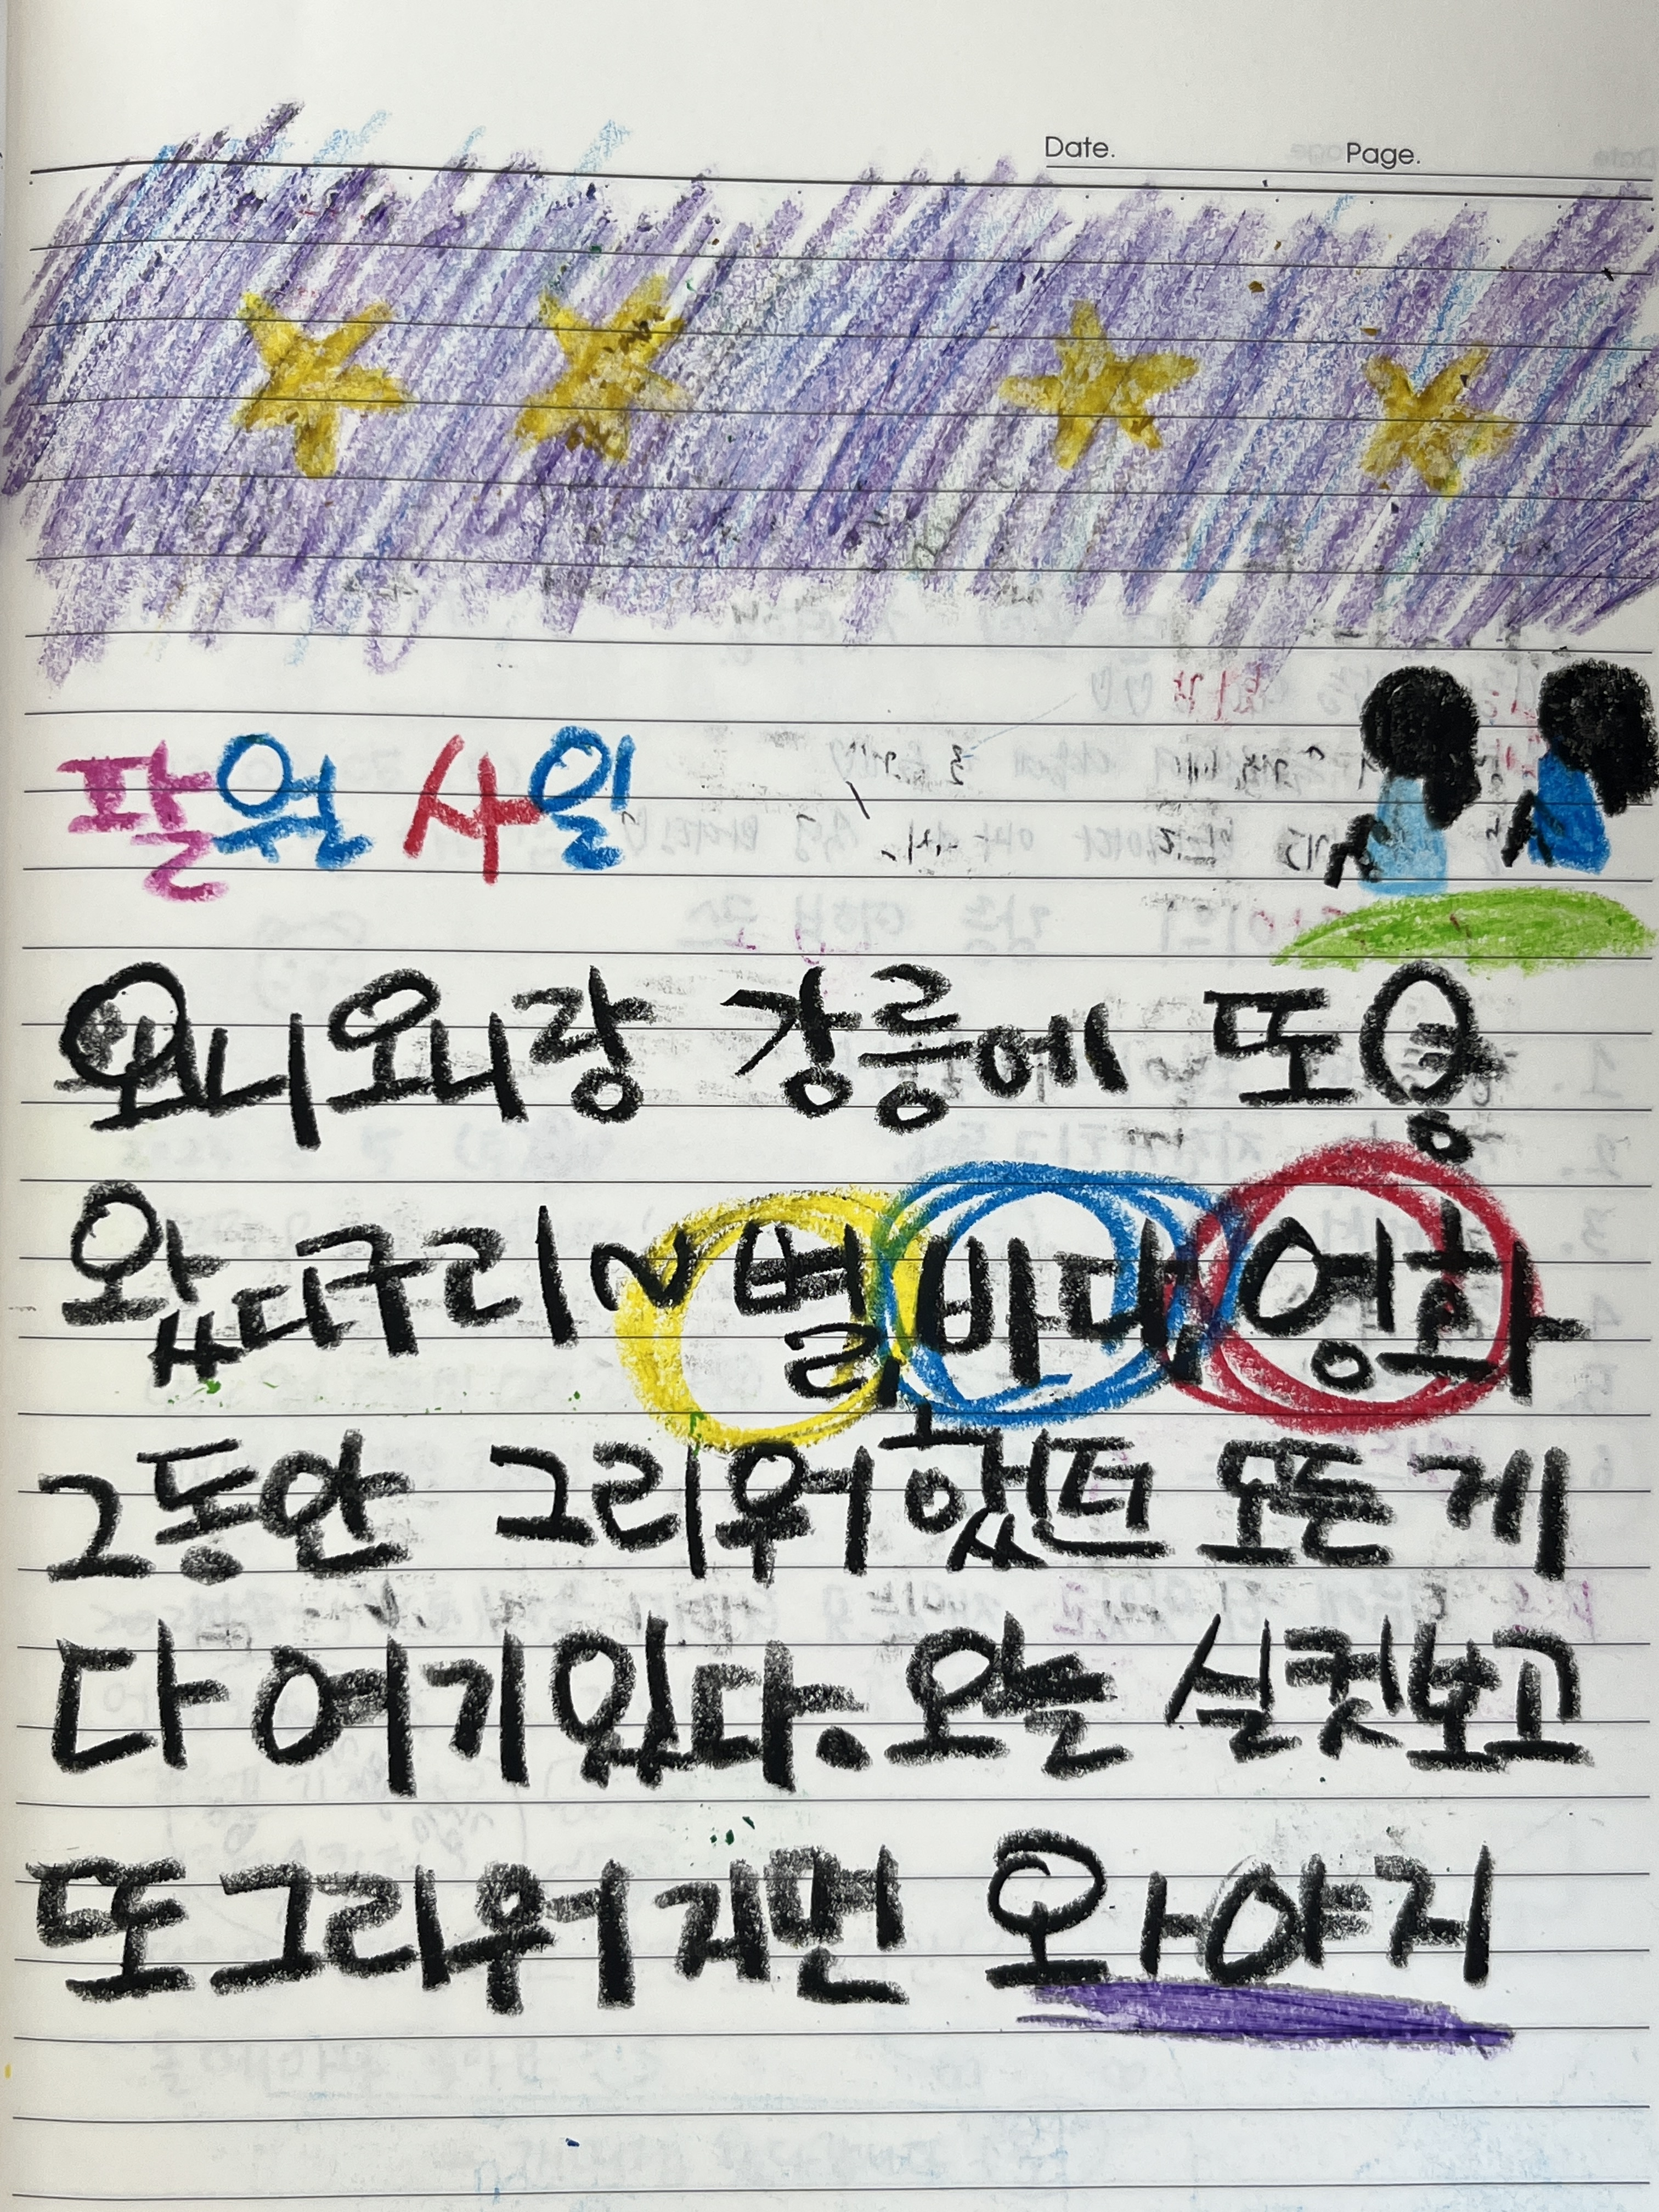 Date. Page.
팔월 사일
외니오니랑 강릉에 또 옹
왔따구리~ 별, 바다, 영화
그동안 그리워했던 모든 게
다 여기 있다. 오늘 실컷 보고
또 그리워지면 와야지